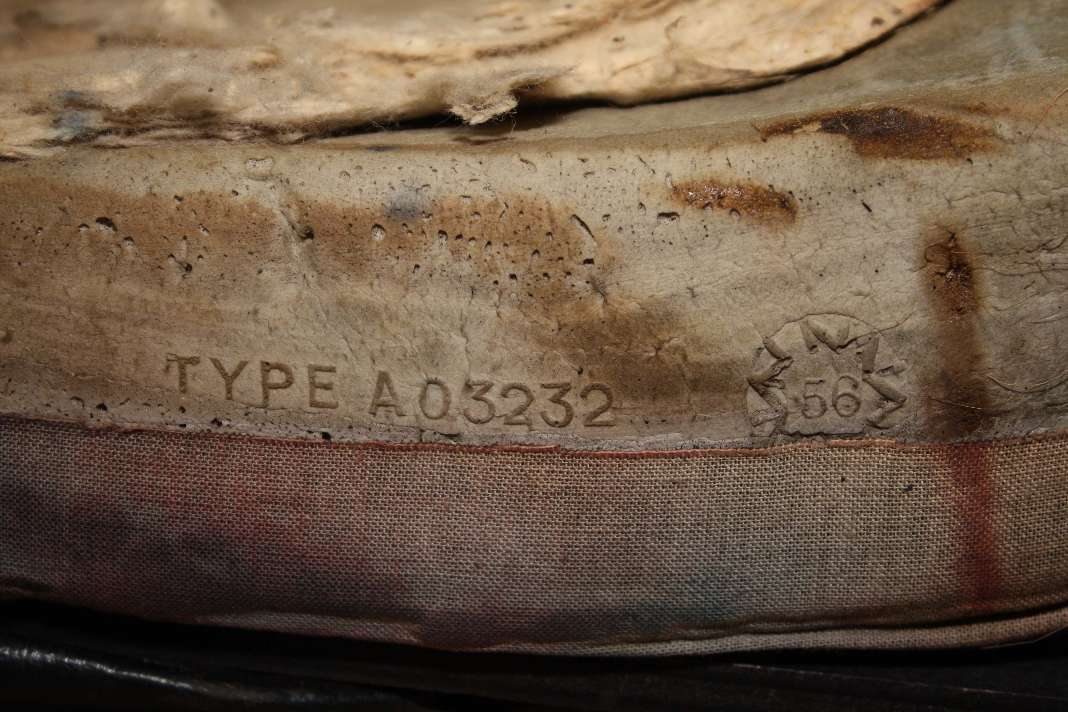 TYPE A03232
56